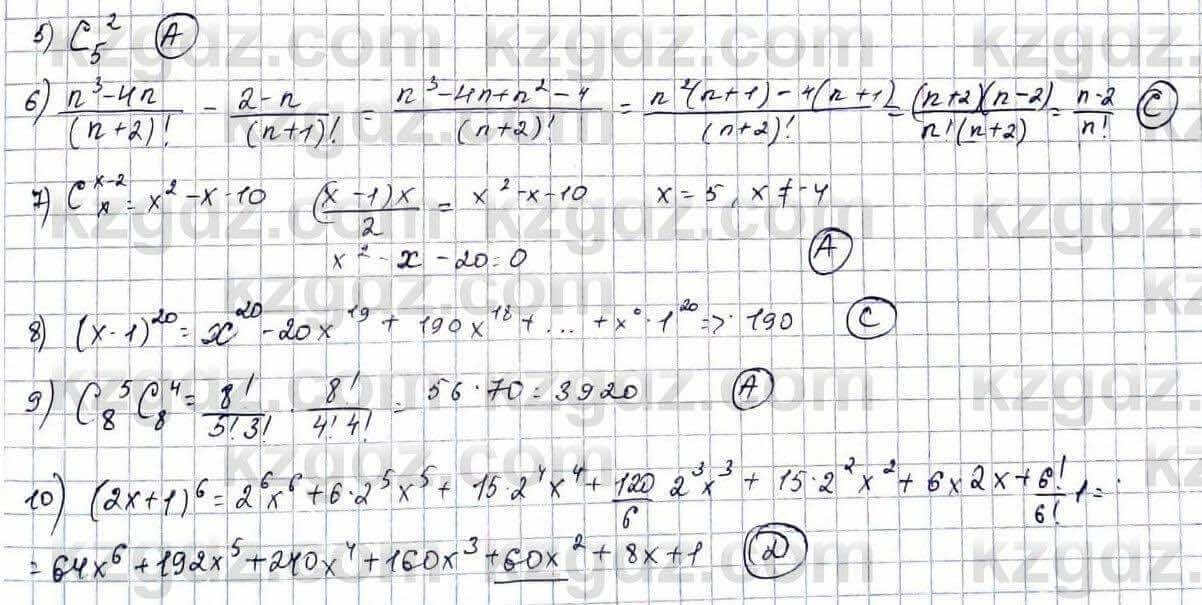 5) C₅² (A)
6) (n³-4n)/((n+2)!) - (2-n)/((n+1)!) = (n³-4n+n²-4)/((n+2)!) = (n²(n+1)-4(n+1))/((n+2)!) = ((n+2)(n-2))/(n!(n+2)) = (n-2)/(n!) (C)
7) Cₓ^(x-2) = x²-x-10   ((x-1)x)/2 = x²-x-10   x=5, x≠-4
x²-x-20=0 (A)
8) (x-1)²⁰ = x²⁰-20x¹⁹+190x¹⁸+...+x⁰·1²⁰ => 190 (C)
9) C₈⁵C₈⁴ = 8!/(5!3!) · 8!/(4!4!) = 56·70=3920 (A)
10) (2x+1)⁶ = 2⁶x⁶+6·2⁵x⁵+15·2⁴x⁴+120/6 2³x³+15·2²x²+6x2x+6!/6! 1=
=64x⁶+192x⁵+240x⁴+160x³+60x²+8x+1 (D)
kzgdz.com